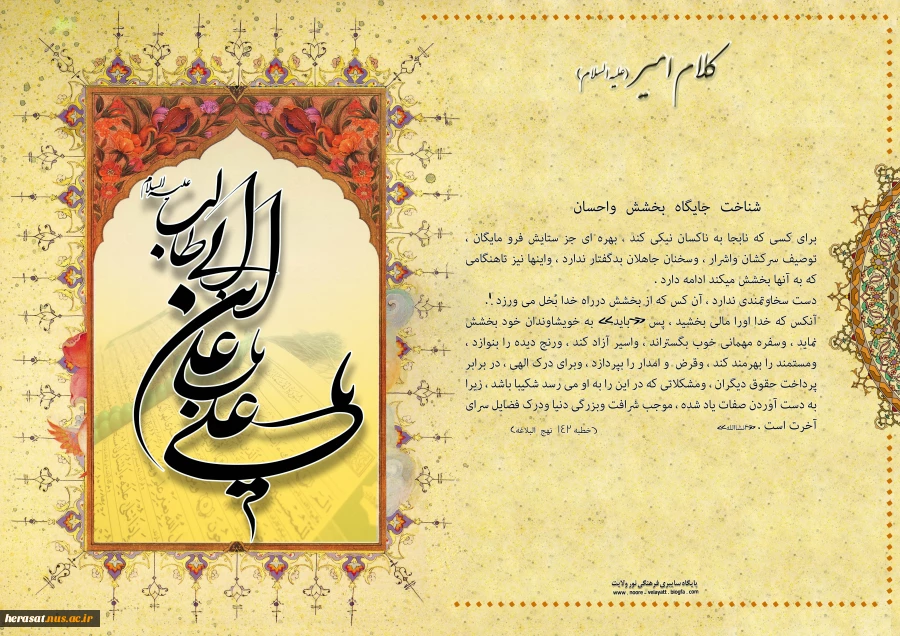 کلام امیر (علیه السلام)
شناخت جایگاه بخشش واحسان
برای کسی که نابجا به ناکسان نیکی کند ، بهره ای جز ستایش فرو مایگان ،
توصیف سرکشان واشرار ، وسخنان جاهلان بدگفتار ندارد ، واینها نیز تاهنگامی
که به آنها بخشش میکند ادامه دارد .
دست سخاوتمندی ندارد ، آن کس که از بخشش درراه خدا بُخل می ورزد !.
آنکس که خدا اورا مالی بخشید ، پس «باید» به خویشاوندان خود بخشش
نماید ، وسفره مهمانی خوب بگستراند ، واسیر آزاد کند ، ورنج دیده را بنوازد ،
ومستمند را بهرمند کند ، وقرض و امدار را بپردازد ، وبرای درک الهی ، در برابر
پرداخت حقوق دیگران ، ومشکلاتی که در این را به او می رسد شکیبا باشد ، زیرا
به دست آؤردن صفات یاد شده ، موجب شرافت وبزرگی دنیا ودرک فضایل سرای
آخرت است . «انشاالله»
(خطبه ۱۴۲ نهج البلاغه)
علیه السلام
یا علی یا علی ابن ابی طالب
پایگاه سایبری فرهنگی نور ولایت
www . noore _ velayatt . blogfa . com
herasat.nus.ac.ir